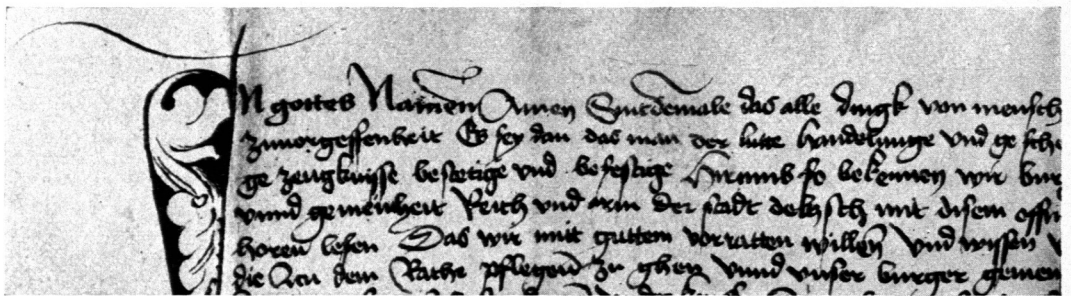 IN gottes Namen Amen Sintdemale das alle dingk von mensch
zuuorgessenheit Es sey dan das man der lutte handelunge vnd gesche
ge zeugknisse bestetige vnd befestige Hirumb so bekennen wir bur
vnnd gemeinheit Reich vnd arm der stadt delizsch mit disem offn
horen lesen Das wir mit guttem vorratten willen vnd wissen
die den dem Rathe pflegen zu ghen vnnd vnser burger gemen